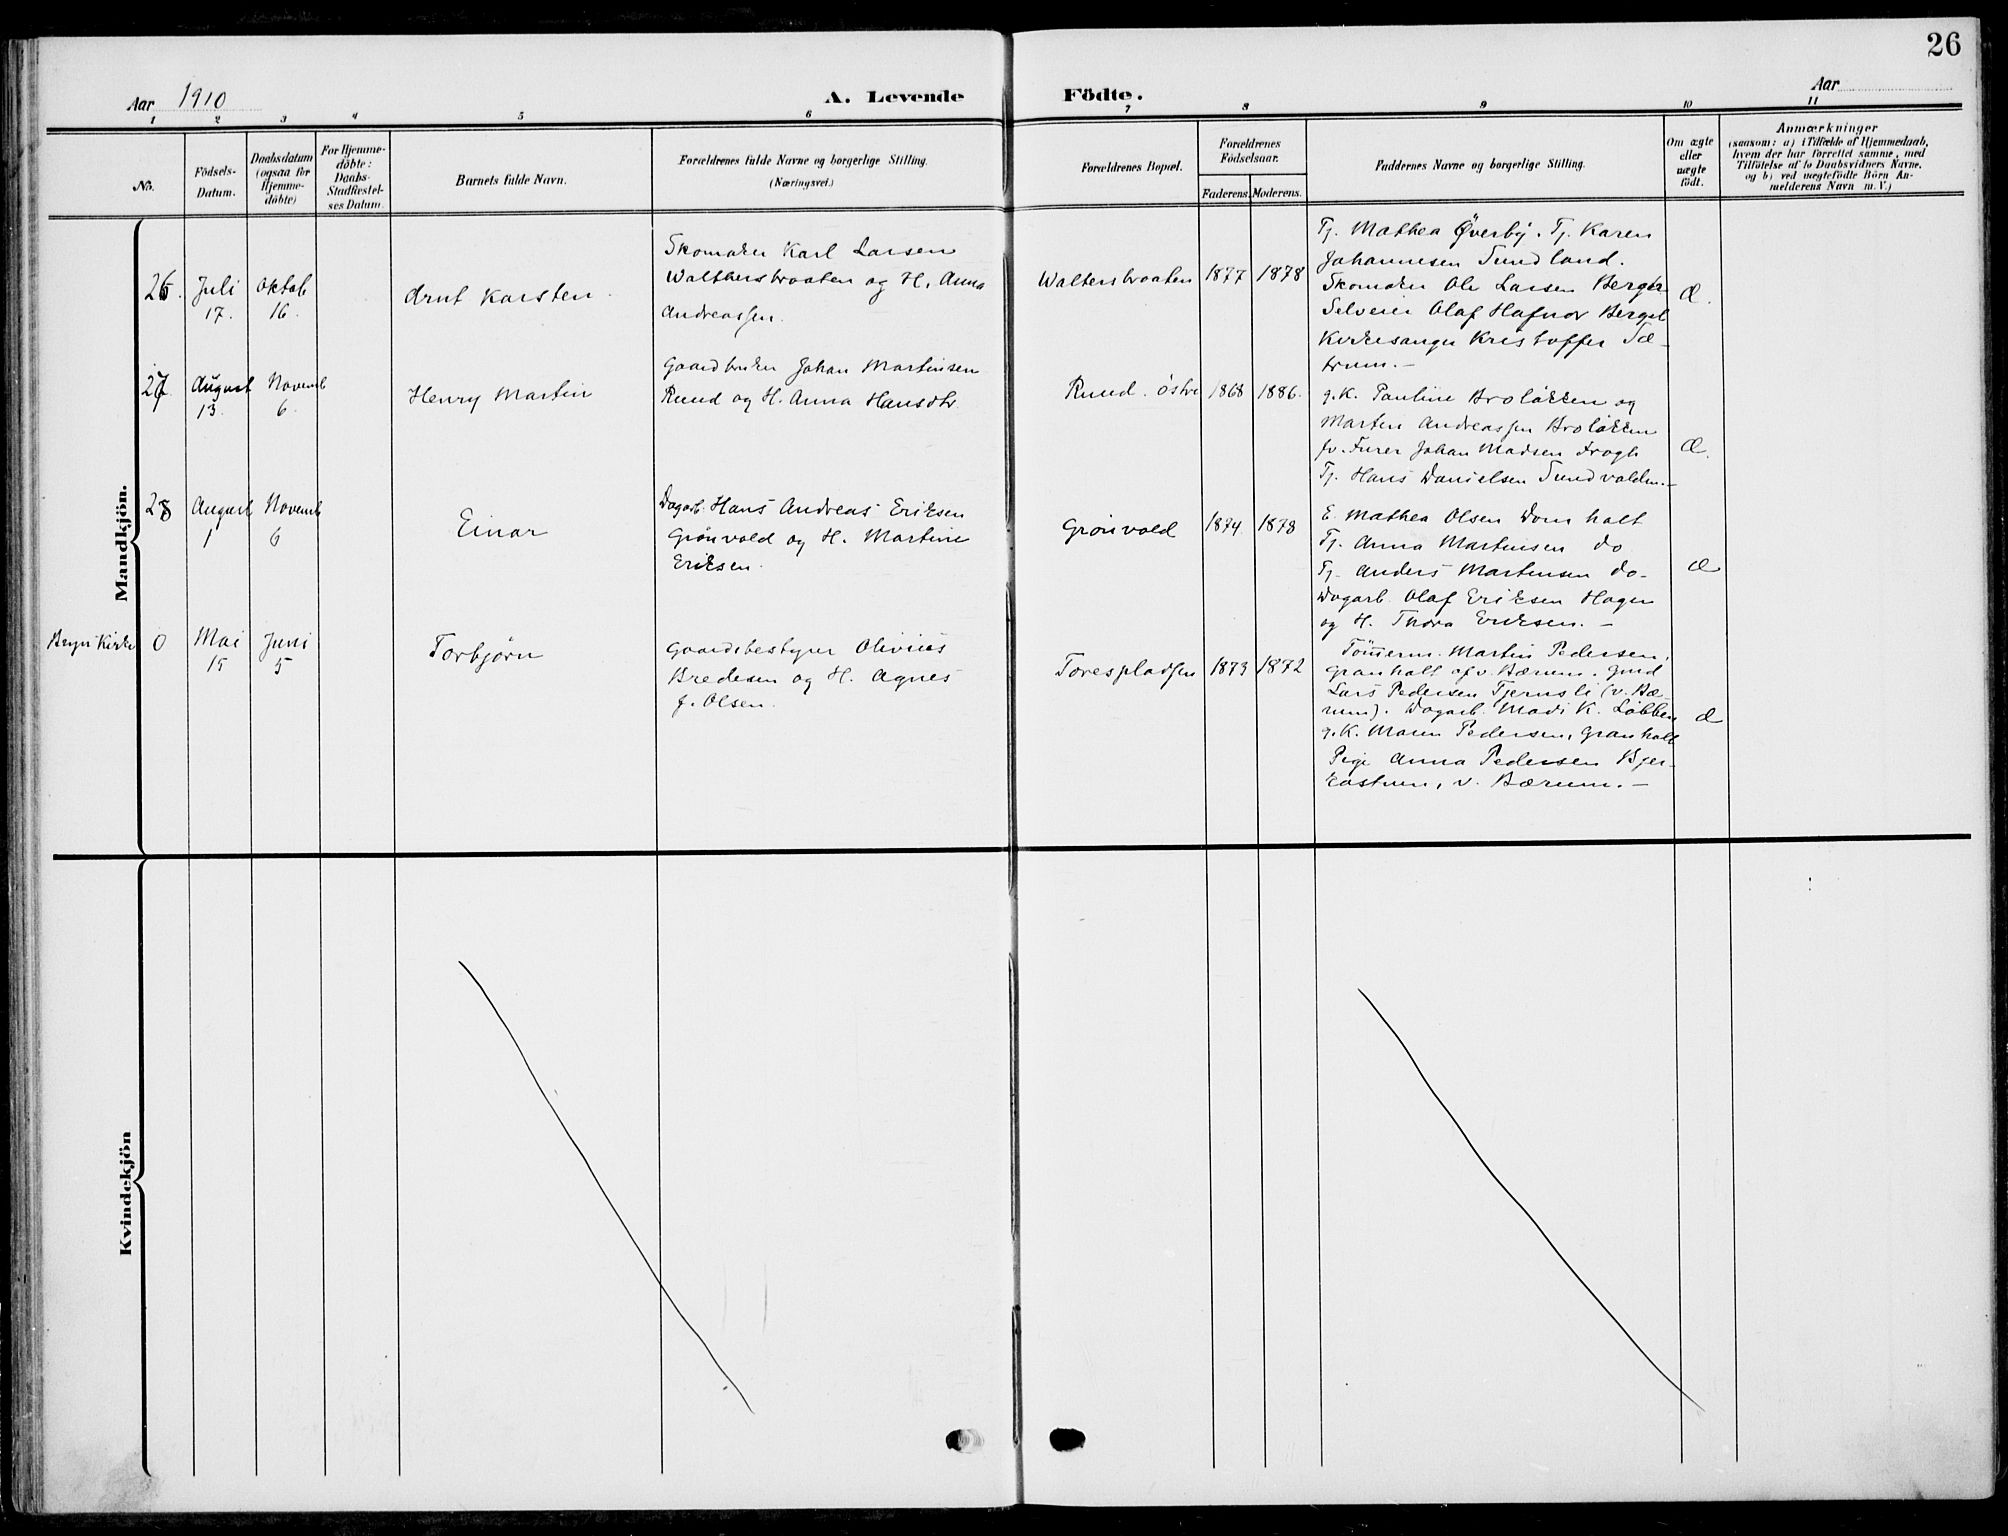 26
Aar 1910
A. Levende
Födte.
Aar
1 2 3 4 5 6 7 8 9 10 11
No.
Födsels-
Datum.
Daabsdatum
(ogsaa for
Hjemme-
döbte)
For Hjemme-
döbte:
Daabs-
Stadfæstel-
ses Datum.
Barnets fulde Navn.
Forældrenes fulde Navne og borgerlige Stilling.
(Næringsvei.)
Forældrenes Bopæl.
Forældrenes
Födselsaar.
Faderens.
Moderens.
Faddernes Navne og borgerlige Stilling.
Om ægte
eller
uægte
födt.
Anmærkninger
(saasom: a) i Tilfælde af Hjemmedaab,
hvem der har forrettet samme, med
Tilföielse af to Daabsvidners Navne.
og b) ved uægtefödte Börn An-
melderens Navn m. V.)
Mandkjön.
26.
Juli
17.
Oktob
16.
Arnt Karsten.
Skomaker Karl Larsen
Walthersbraaten og H. Anna
Andreassen.
Waltersbraaten
1877
1878
Tj. Mathea Øverby. Tj. Karen
Johannesen Sundland.
Skomaker Ole Larsen Berger
Selveier Olaf Hafnor Berget
Kirkesanger Kristoffer Sæ-
trum. -
Æ.
27
August
13.
Novemb
6.
Henry Martin
Gaardbruker Johan Martinsen
Rund og H. Anna Hansdtr.
Rund. østre
1868
1886.
g.K. Pauline Broløkken og
Marten Andreassen Broløkken
fv. Furer Johan Madsen Frogh
Tj. Hans Danielsen Sundvolden. -
Æ.
28
August
1
Novemb
6
Einar
Dagarb. Hans Andreas Eriksen
Grønvold og H. Martine
Eriksen.
Grønvold
1874
1878
E. Mathea Olsen Domholt
Tj. Anna Martinsen do
Tj. Anders Martensen do-
Dagarb. Olaf Eriksen Hagen
og H. Thora Eriksen. -
Æ
Bryn Kirke
0
Mai
15
Juni
5
Torbjørn
Gaardsbestyrer Olivius
Bredesen og H. Agnes
f. Olsen.
Torespladsen
1873
1872
Tömerm. Martin Pedersen,
Granholt af v. Bærum. Gmd
Lars Pedersen Tjernsli (v. Bæ-
rum). Dagarb. Madi K. Løbben
g.K. Maren Pedersen, Granholt
Pige Anna Pedersen Bjer-
kastuen, v. Bærum. -
Æ
Kvindekjön